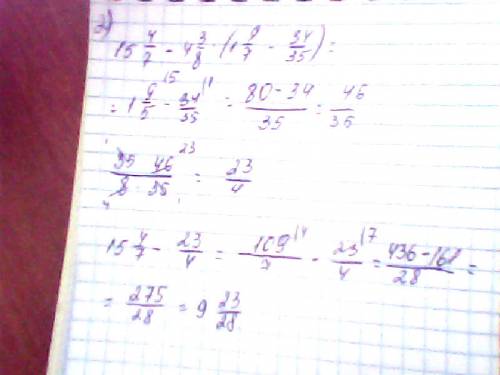 3)
15 4/7 - 4 3/8 · (1 9/7 - 34/35) =
= 1 9/5 |5 - 34/35 |1 = 80-34/35 = 46/35
35 46 23/8 · 35 4 1 = 23/4
15 4/7 - 23/4 = 109/7 |4 - 23/4 |7 = 436-161/28 =
= 275/28 = 9 23/28